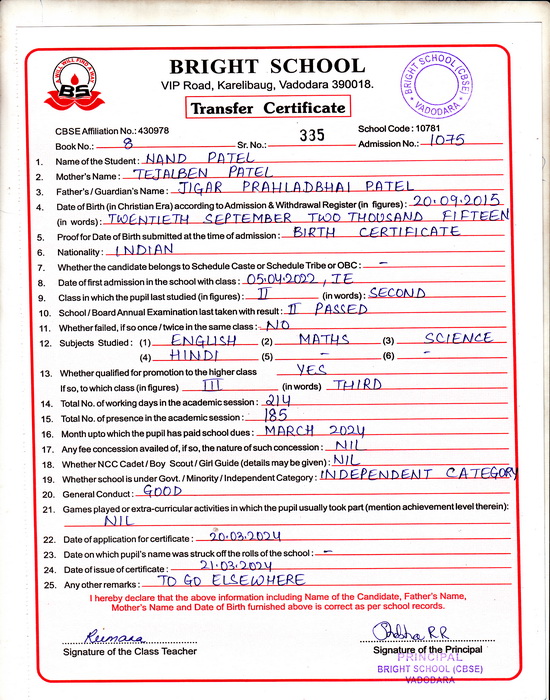 A WILL WILL FIND A WAY
BS
BRIGHT SCHOOL
VIP Road, Karelibaug, Vadodara 390018.
Transfer Certificate
BRIGHT SCHOOL (CBSE)
VADODARA
CBSE Affiliation No.: 430978 School Code : 10781
Book No.: 8 Sr. No.: 335 Admission No.: 1075
1. Name of the Student : NAND PATEL
2. Mother's Name : TEJALBEN PATEL
3. Father's / Guardian's Name : JIGAR PRAHLADBHAI PATEL
4. Date of Birth (in Christian Era) according to Admission & Withdrawal Register (in figures) : 20.09.2015
(in words) : TWENTIETH SEPTEMBER TWO THOUSAND FIFTEEN
5. Proof for Date of Birth submitted at the time of admission : BIRTH CERTIFICATE
6. Nationality : INDIAN
7. Whether the candidate belongs to Schedule Caste or Schedule Tribe or OBC : –
8. Date of first admission in the school with class : 05.04.2022, IE
9. Class in which the pupil last studied (in figures) : II (in words) : SECOND
10. School / Board Annual Examination last taken with result : II PASSED
11. Whether failed, if so once / twice in the same class : NO
12. Subjects Studied : (1) ENGLISH (2) MATHS (3) SCIENCE
(4) HINDI (5) – (6) –
13. Whether qualified for promotion to the higher class YES
If so, to which class (in figures) III (in words) THIRD
14. Total No. of working days in the academic session : 214
15. Total No. of presence in the academic session : 185
16. Month upto which the pupil has paid school dues : MARCH 2024
17. Any fee concession availed of, if so, the nature of such concession : NIL
18. Whether NCC Cadet / Boy Scout / Girl Guide (details may be given) : NIL
19. Whether school is under Govt. / Minority / Independent Category : INDEPENDENT CATEGORY
20. General Conduct : GOOD
21. Games played or extra-curricular activities in which the pupil usually took part (mention achievement level therein) :
NIL
22. Date of application for certificate : 20.03.2024
23. Date on which pupil's name was struck off the rolls of the school : –
24. Date of issue of certificate : 21.03.2024
25. Any other remarks : TO GO ELSEWHERE
I hereby declare that the above information including Name of the Candidate, Father's Name,
Mother's Name and Date of Birth furnished above is correct as per school records.
Signature of the Class Teacher Signature of the Principal
PRINCIPAL
BRIGHT SCHOOL (CBSE)
VADODARA